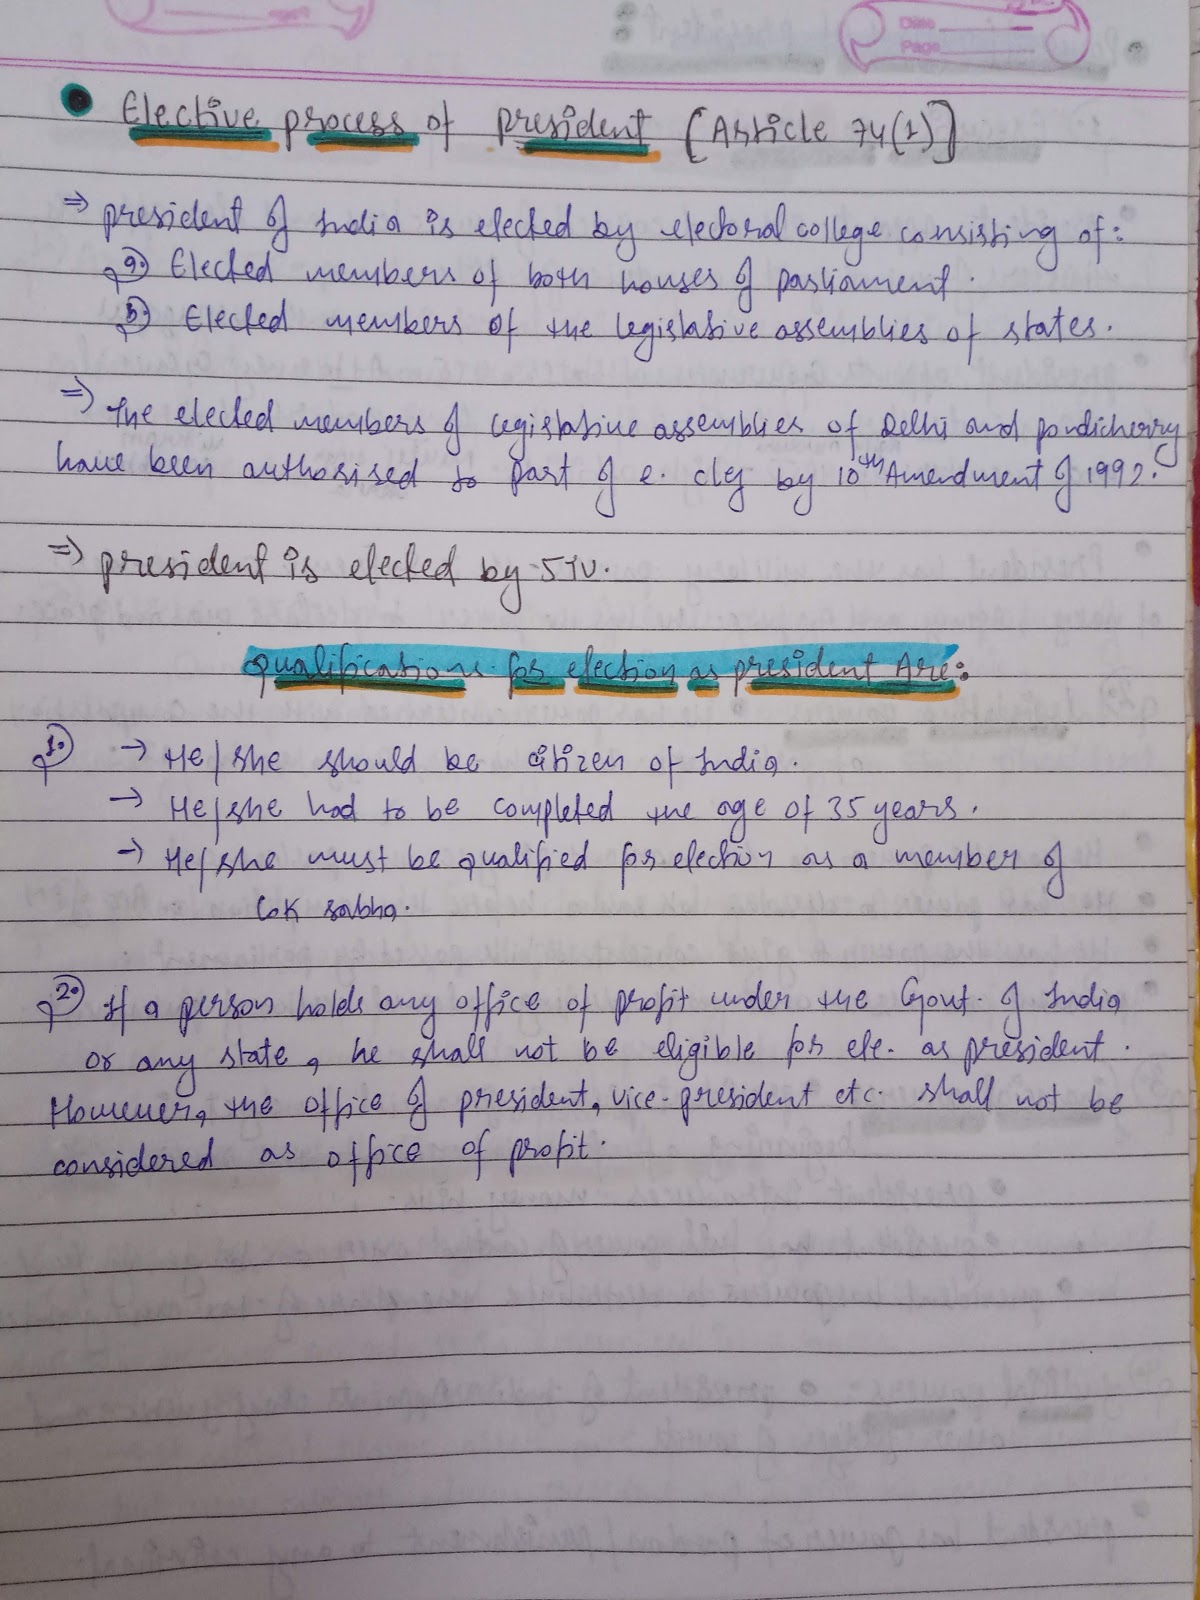 Date
Page
Elective process of president [Article 74(1)]
⇒ president of India is elected by electoral college consisting of:
a) Elected members of both houses of parliament.
b) Elected members of the legislative assemblies of states.
⇒ The elected members of legislative assemblies of Delhi and pondicherry
have been authorised to part of e. clg by 10th Amendment of 1992.
⇒ president is elected by STV.
qualifications for election as president Are:
1. → He/she should be citizen of India.
→ He/she had to be completed the age of 35 years.
→ He/she must be qualified for election as a member of
Lok sabha.
2. If a person holds any office of profit under the Govt. of India
or any state, he shall not be eligible for ele. as president.
However, the office of president, vice-president etc. shall not be
considered as office of profit.